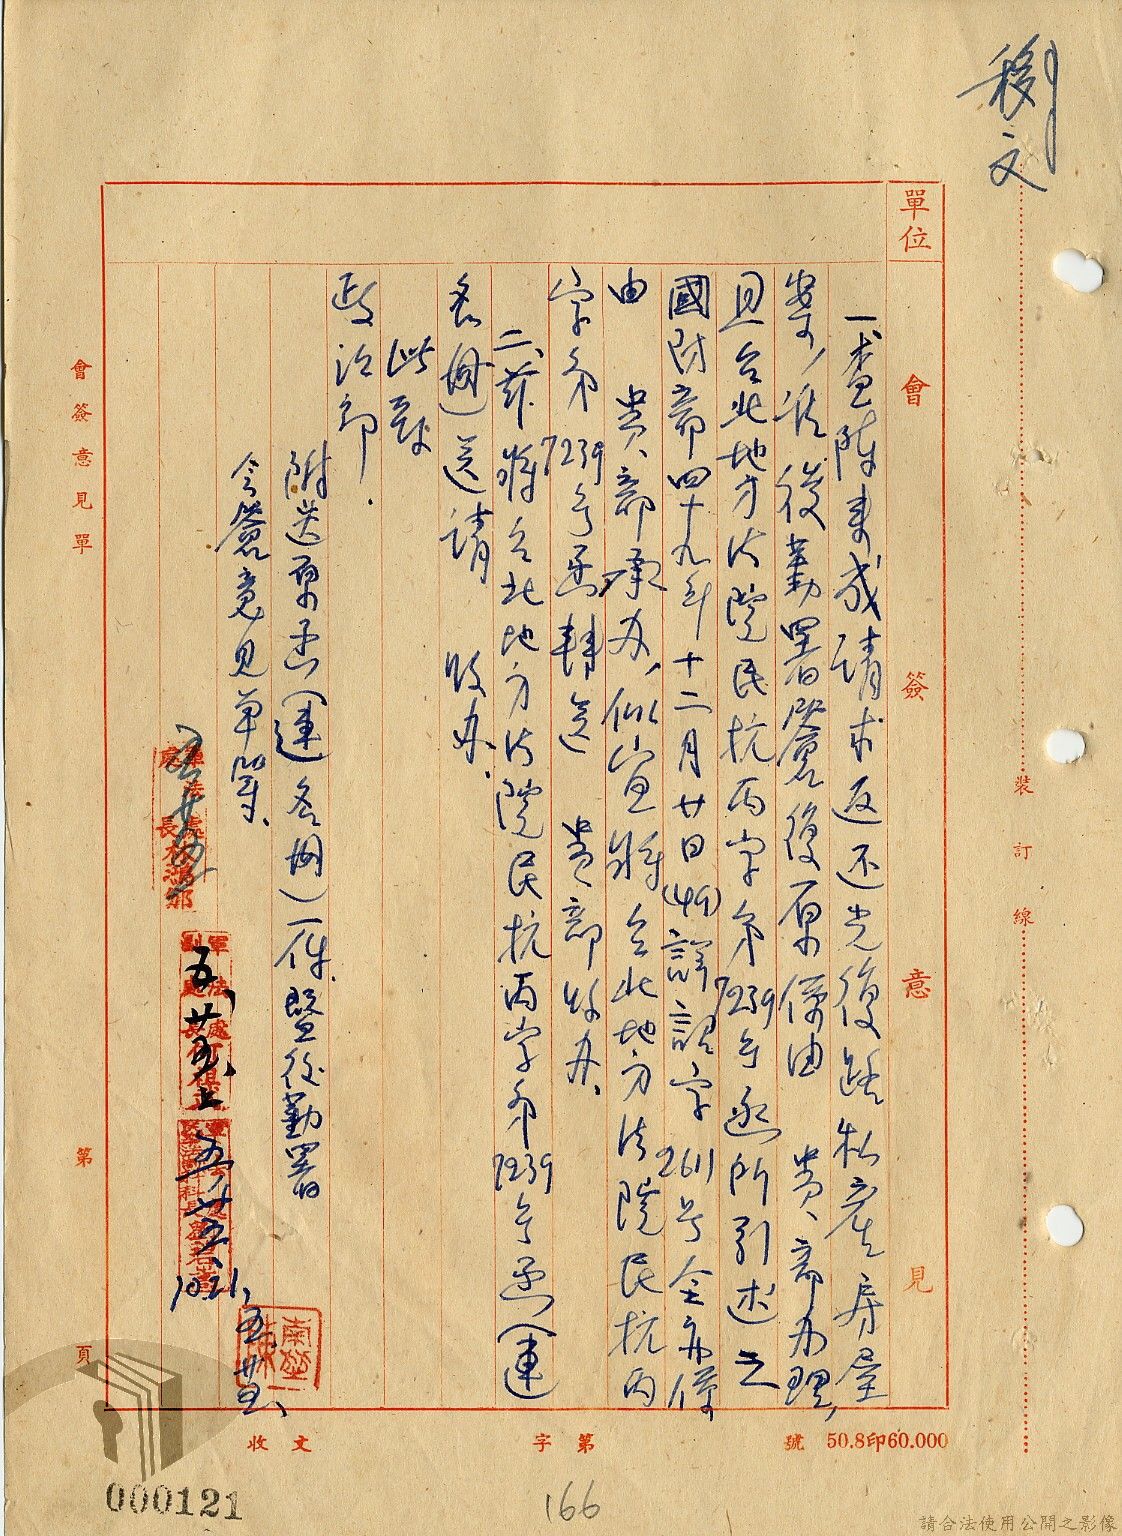 移文
單位
會簽意見
一、查陳來成請求返還光復路私產房屋
案，准後勤署簽復原係由　貴部辦理，
且台北地方法院民抗丙字第7239号函所引述之
國防部四十九年十二月廿日(49)詳諾字2611号令亦係
由　貴部承办，似宜將台北地方法院民抗丙
字第7239号函轉送　貴部收办、
二、茲將台北地方法院民抗丙字第7239号函(連
卷冊)送請　收办、
此致
政治部．
附送原函(連卷冊)一件、暨後勤署
会簽意見单一件、
軍法處
處長
五、廿五、
軍法處
副處長
五、廿五、
1021、
五、廿五、
會簽意見單
第
頁
裝
訂
線
收文
字第
號
50.8印60.000
000121
166
請合法使用公開之影像